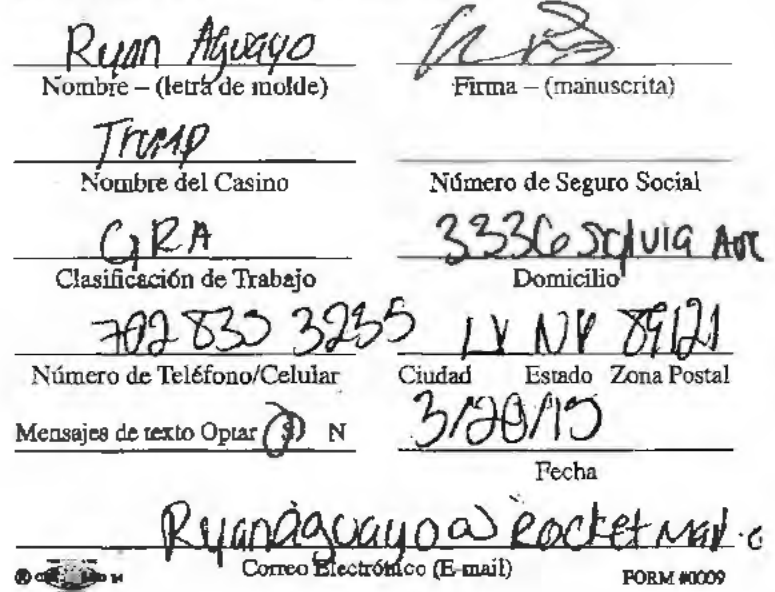 Ryan Aguayo
Nombre – (letra de molde) Firma – (manuscrita)
Trump
Nombre del Casino Número de Seguro Social
GRA 3336 Ave
Clasificación de Trabajo Domicilio
702 833 3235 LV NV 89121
Número de Teléfono/Celular Ciudad Estado Zona Postal
Mensajes de texto Optar S N 3/20/15
Fecha
Ryanaguayo@rocketmail.c
Correo Electrónico (E-mail) FORM #0009